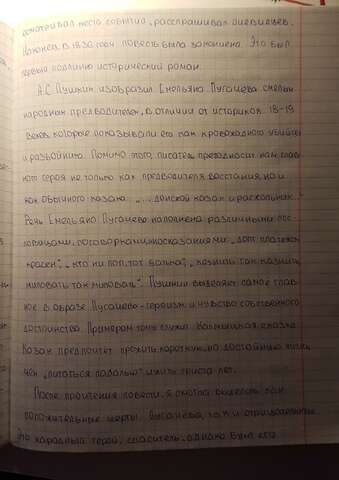 осматривал места событий, расспрашивал очевидцев.
Наконец в 1836 году повесть была закончена. Это был
первый подлинно исторический роман.
А.С. Пушкин изобразил Емельяна Пугачева смелым
народным предводителем, в отличии от историков 18-19
веков, которые показывали его как кровожадного убийцу
и разбойника. Помимо этого, писатель преподносит нам глав-
ного героя не только как предводителя восстания, но и
как обычного казака „... донской казак и раскольник."
Речь Емельяна Пугачева наполнена различными пос-
ловицами, поговорками, иносказаниями „долг платежом
красен", „кто ни поп, тот батька", „казнить так казнить,
миловать так миловать". Пушкин выделяет самое глав-
ное в образе Пугачева - героизм и чувство собственного
достоинства. Примером тому служит Калмыцкая сказка.
Казак предпочтет прожить короткую, но достойную жизнь,
чем „питаться падалью" и жить триста лет.
После прочтения повести, я смогла выделить как
положительные черты Пугачева, так и отрицательные.
Это народный герой, спаситель, однако бунт его